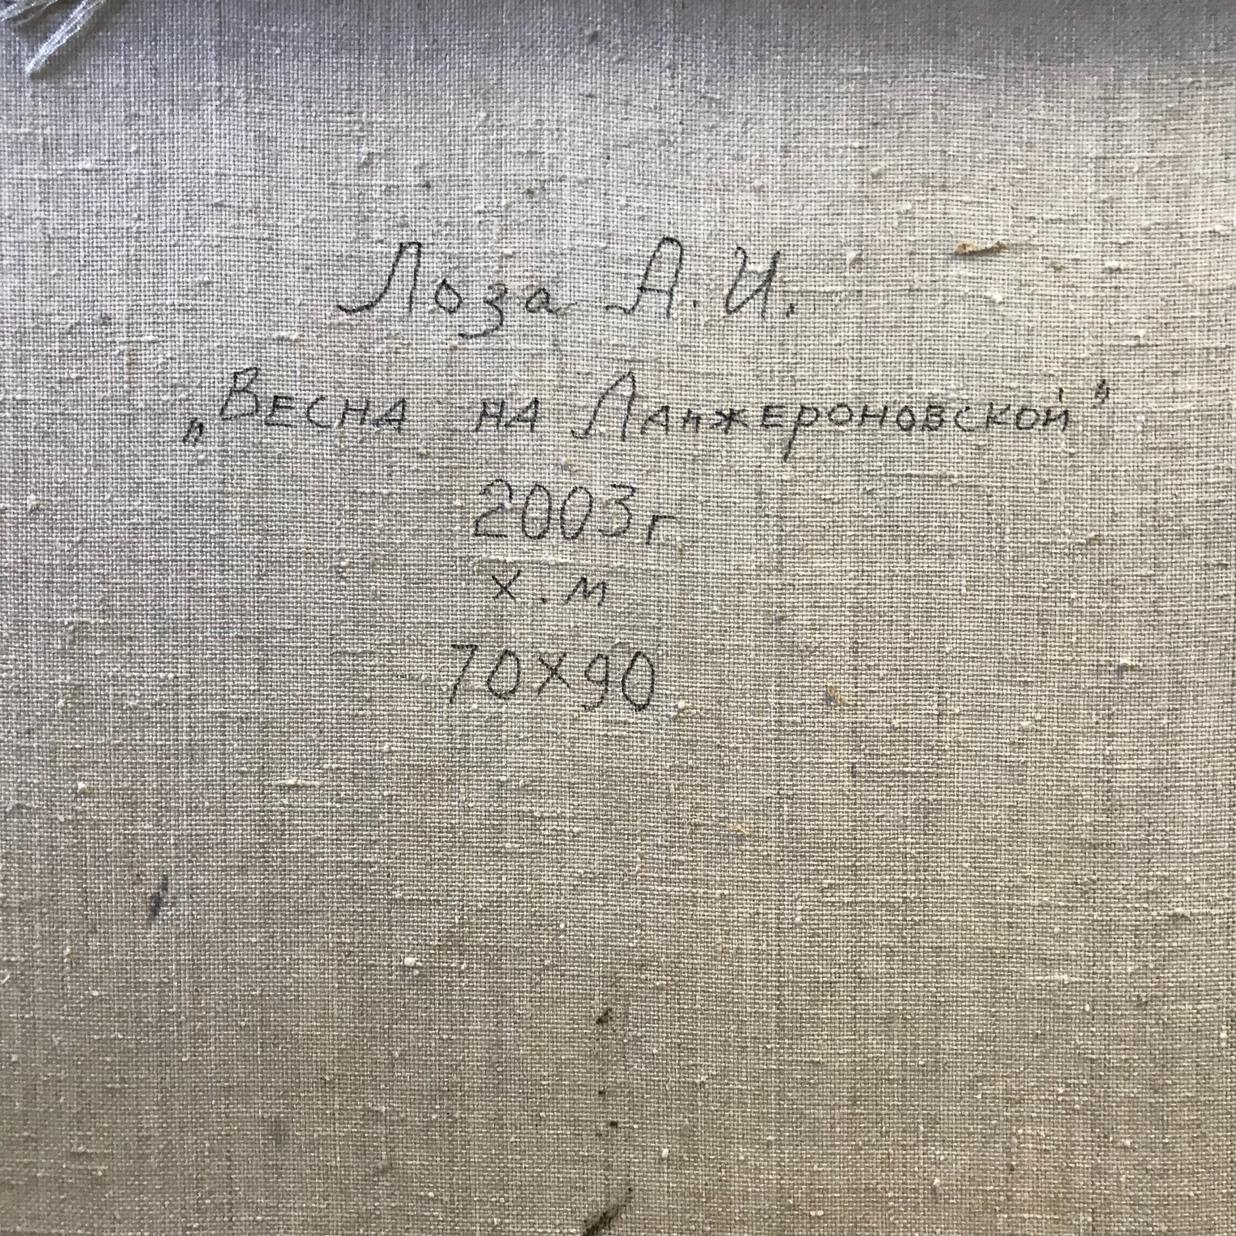 Лоза А.И.
„Весна на Ланжероновской"
2003г
х.м
70х90